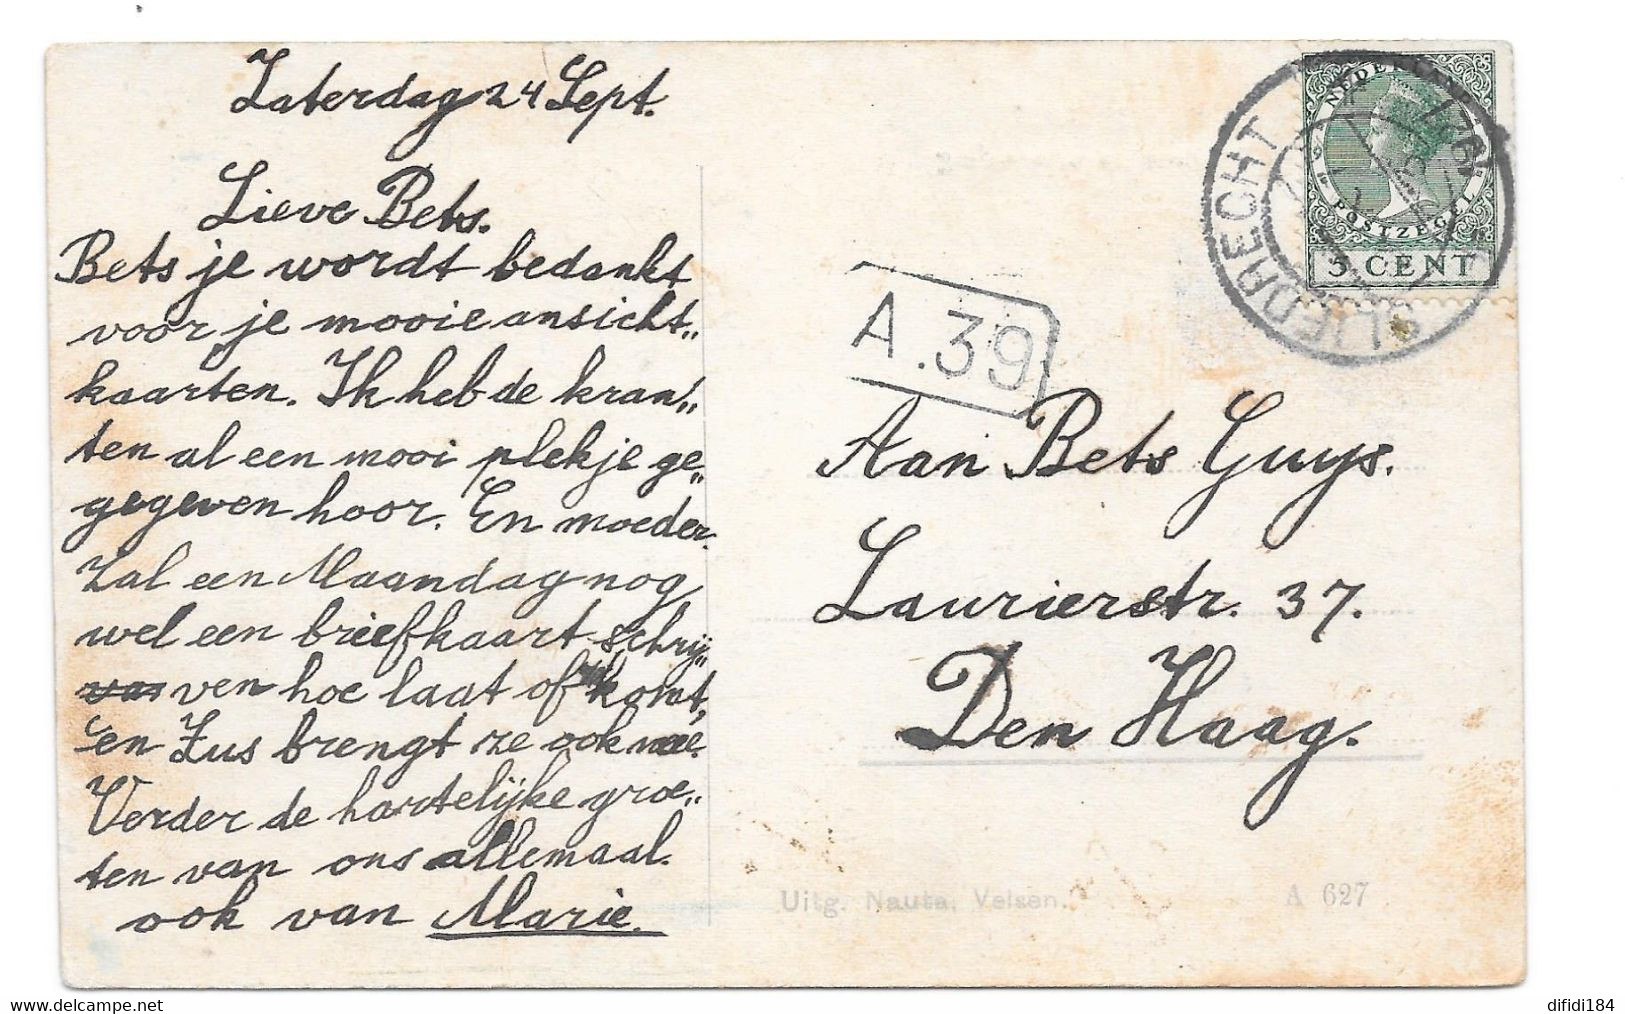 Zaterdag 24 Sept.
Lieve Bets.
Bets je wordt bedankt
voor je mooie ansicht„
kaarten. Ik heb de kran„
ten al een mooi plekje ge„
gegeven hoor. En moeder
zal een Maandag nog
wel een briefkaart schrij„
ven hoe laat of komt,
en Zus brengt ze ook mee.
Verder de hartelijke groe„
ten van ons allemaal.
ook van Marie.
NEDERLAND
POSTZEGEL
5 CENT
SLIEDRECHT
A.39
Aan Bets Guys.
Laurierstr. 37.
Den Haag.
Uitg. Nauta, Velsen.
A 627
delcampe.net
difidi184